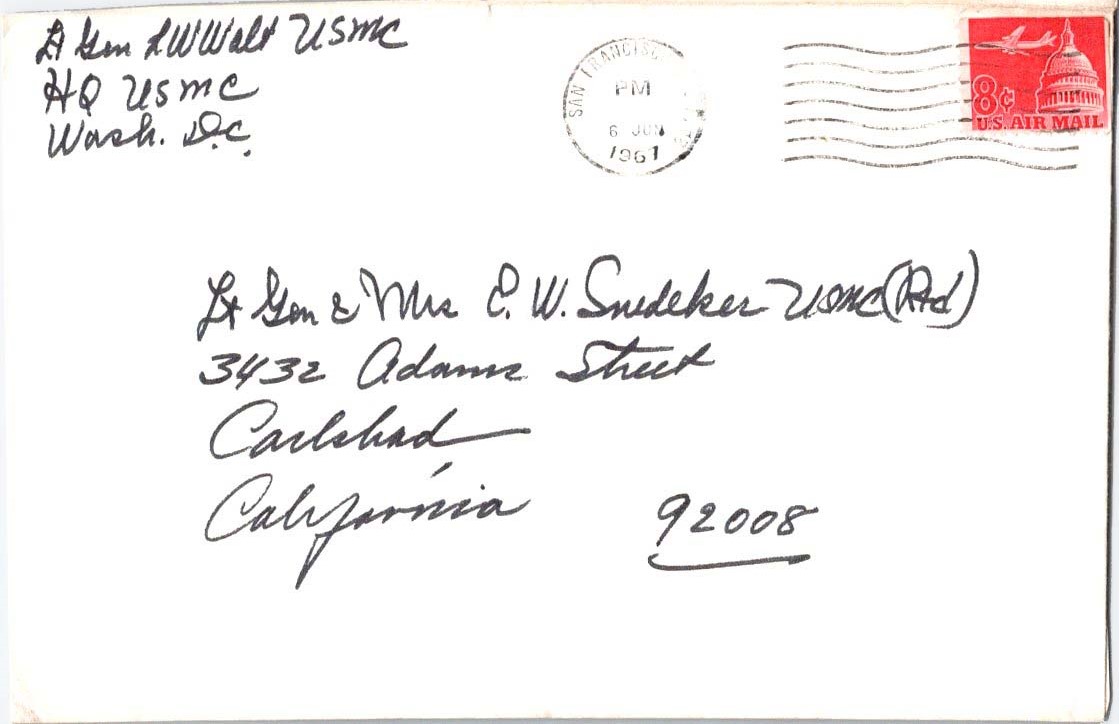 Lt Gen L W Walt USMC
HQ USMC
Wash. D.C.
SAN FRANCISCO
PM
6 JUN
1967
8¢
U.S. AIR MAIL
Lt Gen & Mrs E. W. Snedeker USMC (Rtd)
3432 Adams Street
Carlsbad
California 92008